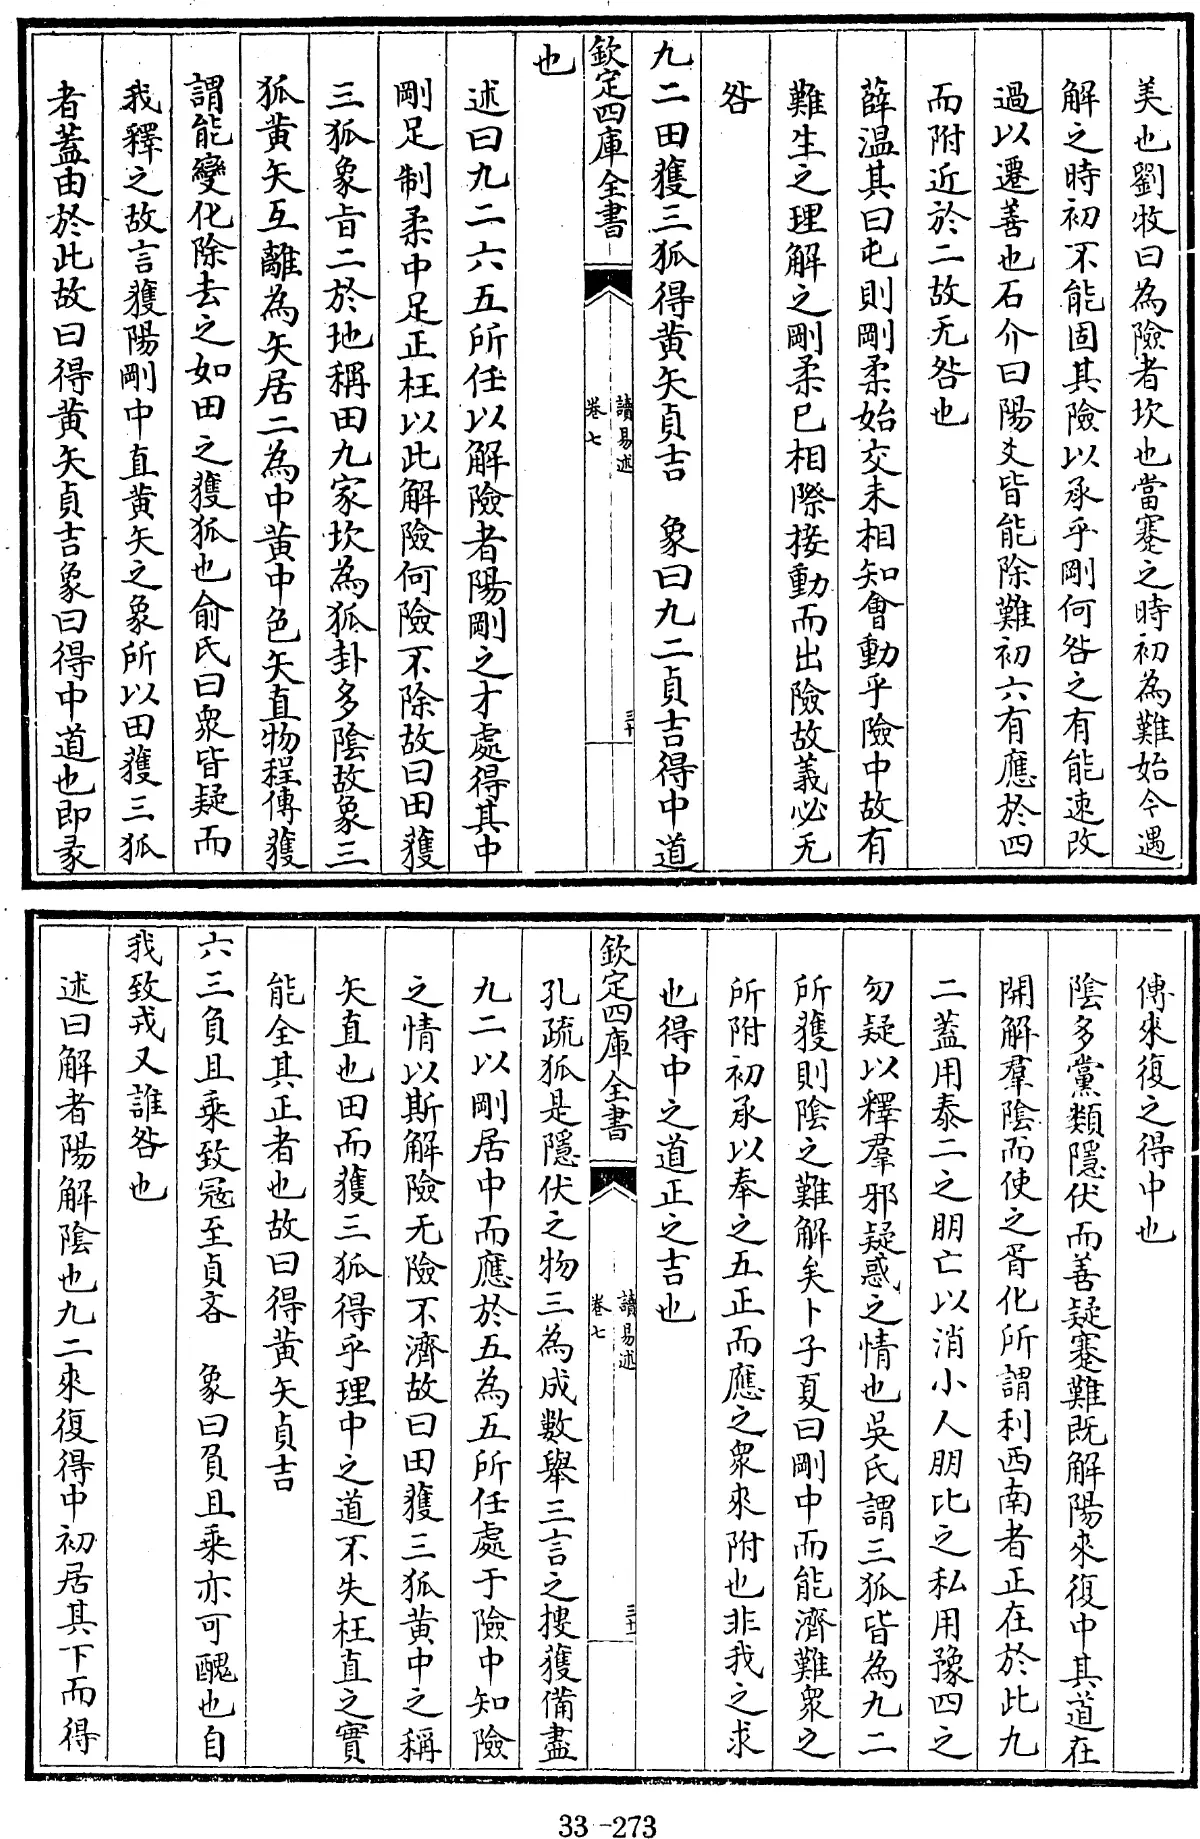 美也劉牧曰為險者坎也當蹇之時初為難始今遇
解之時初不能固其險以承乎剛何咎之有能速改
過以遷善也石介曰陽爻皆能除難初六有應於四
而附近於二故无咎也
薛温其曰屯則剛柔始交未相知會動乎險中故有
難生之理解之剛柔已相際接動而出險故義必无
咎
九二田獲三狐得黄矢貞吉　象曰九二貞吉得中道
欽定四庫全書
讀易述
卷七
三十
也
述曰九二六五所任以解險者陽剛之才處得其中
剛足制柔中足正枉以此解險何險不除故曰田獲
三狐象旨二於地稱田九家坎為狐卦多陰故象三
狐黄矢互離為矢居二為中黄中色矢直物程傳獲
謂能變化除去之如田之獲狐也俞氏曰衆皆疑而
我釋之故言獲陽剛中直黄矢之象所以田獲三狐
者蓋由於此故曰得黄矢貞吉象曰得中道也即彖
傳來復之得中也
陰多黨類隱伏而善疑蹇難既解陽來復中其道在
開解羣陰而使之胥化所謂利西南者正在於此九
二蓋用泰二之朋亡以消小人朋比之私用豫四之
勿疑以釋羣邪疑惑之情也吳氏謂三狐皆為九二
所獲則陰之難解矣卜子夏曰剛中而能濟難衆之
所附初承以奉之五正而應之衆來附也非我之求
也得中之道正之吉也
欽定四庫全書
讀易述
卷七
三十一
孔疏狐是隱伏之物三為成數舉三言之搜獲備盡
九二以剛居中而應於五為五所任處于險中知險
之情以斯解險无險不濟故曰田獲三狐黄中之稱
矢直也田而獲三狐得乎理中之道不失枉直之實
能全其正者也故曰得黄矢貞吉
六三負且乘致寇至貞吝　象曰負且乘亦可醜也自
我致戎又誰咎也
述曰解者陽解陰也九二來復得中初居其下而得
33-273